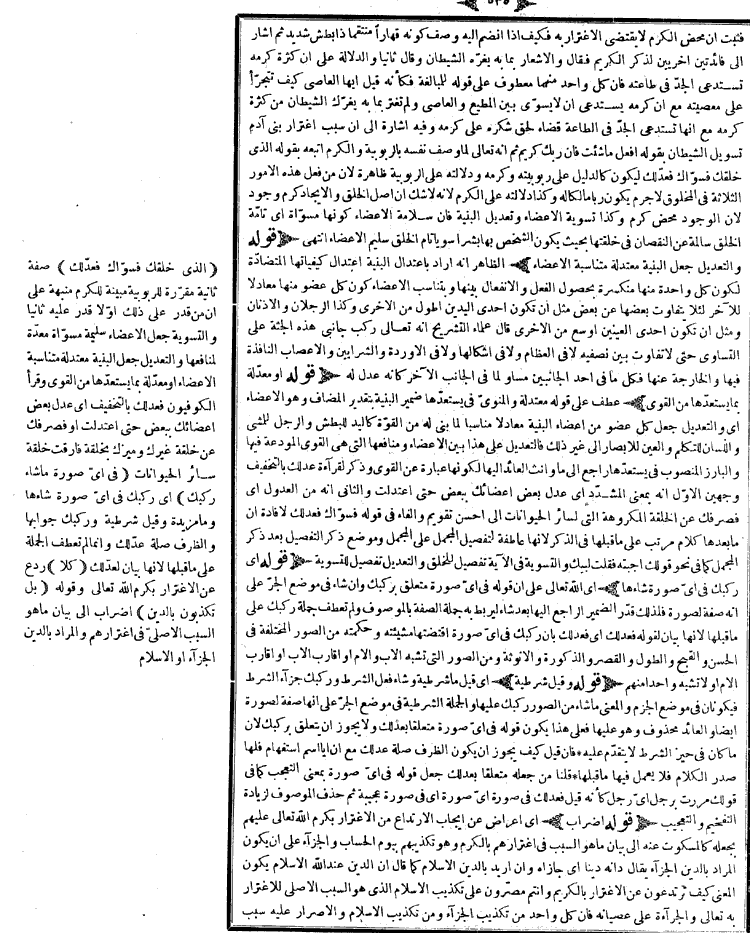 فثبت ان محض الكرم لايقتضى الاغترار به فكيف اذا انضم اليه وصف كونه قهارا منتقما ذا بطش شديد ثم اشار
الى فائدتين اخريين لذكر الكريم فقال والاشعار بما به يغره الشيطان وقال ثانيا والدلالة على ان كثرة كرمه
تستدعى الجد فى طاعته فان كل واحد منهما معطوف على قوله للمبالغة فكأنه قيل ايها العاصى كيف تتجرأ
على معصيته مع ان كرمه يستدعى ان لايسوى بين المطيع والعاصى ولم تغتر بما به يغرك الشيطان من كثرة
كرمه مع انها تستدعى الجد فى الطاعة قضاء لحق شكره على كرمه وفيه اشارة الى ان سبب اغترار بنى آدم
تسويل الشيطان بقوله افعل ماشئت فان ربك كريم ثم انه تعالى لما وصف نفسه بالربوبية والكرم اتبعه بقوله الذى
خلقك فسواك فعدلك ليكون كالدليل على ربوبيته وكرمه ودلالته على الربوبية ظاهرة لان من فعل هذه الامور
الثلاثة فى المخلوق لاجرم يكون ربا مالكا له وكذا دلالته على الكرم لانه لاشك ان اصل الخلق والايجاد كرم وجود
لان الوجود محض كرم وكذا تسوية الاعضاء وتعديل البنية فان سلامة الاعضاء كونها مسواة اى تامة
الخلق سالمة عن النقصان فى خلقتها بحيث يكون الشخص بها بشرا سويا تام الخلق سليم الاعضاء انتهى ﴿ قوله
والتعديل جعل البنية معتدلة متناسبة الاعضاء ﴾ الظاهر انه اراد باعتدال البنية اعتدال كيفياتها المتضادة
لكون كل واحدة منها منكسرة بحصول الفعل والانفعال بينها وبتناسب الاعضاء كون كل عضو منها معادلا
للآخر لئلا يتفاوت بعضها عن بعض مثل ان تكون احدى اليدين اطول من الاخرى وكذا الرجلان والاذنان
ومثل ان تكون احدى العينين اوسع من الاخرى قال علماء التشريح انه تعالى ركب جانبى هذه الجثة على
التساوى حتى لاتفاوت بين نصفيه لافى العظام ولافى اشكالها ولافى الاوردة والشرايين والاعصاب النافذة
فيها والخارجة عنها فكل ما فى احد الجانبين مساو لما فى الجانب الآخر كانه عدل له ﴿ قوله او معدلة
بما يستعدها من القوى ﴾ عطف على قوله معتدلة والمنوى فى يستعدها ضمير البنية بتقدير المضاف وهو الاعضاء
اى والتعديل جعل كل عضو من اعضاء البنية معادلا مناسبا لما بنى له من القوة كاليد للبطش والرجل للمشى
واللسان للتكلم والعين للابصار الى غير ذلك فالتعديل على هذا بين الاعضاء ومنافعها التى هى القوى المودعة فيها
والبارز المنصوب فى يستعدها راجع الى ما وانث العائد اليها لكونها عبارة عن القوى وذكر لقراءة عدلك بالتخفيف
وجهين الاول انه بمعنى المشدد اى عدل بعض اعضائك ببعض حتى اعتدلت والثانى انه من العدول اى
فصرفك عن الخلقة المكروهة التى لسائر الحيوانات الى احسن تقويم والفاء فى قوله فسواك فعدلك لافادة ان
مابعدها كلام مرتب على ماقبلها فى الذكر لانها عاطفة لتفصيل المجمل على المجمل وموضع ذكر التفصيل بعد ذكر
المجمل كما فى نحو قولك اجبته فقلت لبيك والتسوية فى الآية تفصيل للخلق والتعديل تفصيل للتسوية ﴿ قوله اى
ركبك فى اى صورة شاءها ﴾ اى الله تعالى على ان قوله فى اى صورة متعلق بركبك وان شاء فى موضع الجر على
انه صفة لصورة فلذلك قدر الضمير الراجع اليها بعد شاء ليربط به جملة الصفة بالموصوف ولم تعطف جملة ركبك على
ماقبلها لانها بيان لقوله فعدلك اى فعدلك بان ركبك فى اى صورة اقتضتها مشيئته وحكمته من الصور المختلفة فى
الحسن والقبح والطول والقصر والذكورة والانوثة ومن الصور التى تشبه الاب والام او اقارب الاب او اقارب
الام او لا تشبه واحدا منهم ﴿ قوله وقيل شرطية ﴾ اى قيل ما شرطية وشاء فعل الشرط وركبك جزآء الشرط
فيكونان فى موضع الجزم والمعنى ماشاء من الصور ركبك عليها والجملة الشرطية فى موضع الجر على انها صفة لصورة
ايضا والعائد محذوف وهو عليها فعلى هذا يكون قوله فى اى صورة متعلقا بعدلك ولايجوز ان يتعلق بركبك لان
ما كان فى حيز الشرط لايتقدم عليه * فان قيل كيف يجوز ان يكون الظرف صلة عدلك مع ان ايا اسم استفهام فلها
صدر الكلام فلا يعمل فيها ماقبلها * قلنا من جعله متعلقا بعدلك جعل قوله فى اى صورة بمعنى التعجب كما فى
قولك مررت برجل اى رجل كأنه قيل فعدلك فى صورة اى صورة اى فى صورة عجيبة ثم حذف الموصوف لزيادة
التفخيم والتعجيب ﴿ قوله اضراب ﴾ اى اعراض عن ايجاب الارتداع من الاغترار بكرم الله تعالى عليهم
بجعله كالمسكوت عنه الى بيان ماهو السبب فى اغترارهم بالكرم وهو تكذيبهم بيوم الحساب والجزآء على ان يكون
المراد بالدين الجزآء يقال دانه دينا اى جازاه وان اريد بالدين الاسلام كما قال ان الدين عندالله الاسلام يكون
المعنى كيف ترتدعون عن الاغترار بالكريم وانتم مصرون على تكذيب الاسلام الذى هو السبب الاصلى للاغترار
به تعالى والجرآءة على عصيانه فان كل واحد من تكذيب الجزآء ومن تكذيب الاسلام والاصرار عليه سبب
( الذى خلقك فسواك فعدلك ) صفة
ثانية مقررة للربوبية مبينة للكرم منبهة على
ان من قدر على ذلك اولا قدر عليه ثانيا
والتسوية جعل الاعضاء سليمة مسواة معدة
لمنافعها والتعديل جعل البنية معتدلة متناسبة
الاعضاء او معدلة بما يستعدها من القوى وقرأ
الكوفيون فعدلك بالتخفيف اى عدل بعض
اعضائك ببعض حتى اعتدلت او فصرفك
عن خلقة غيرك وميزك بخلقة فارقت خلقة
سائر الحيوانات ( فى اى صورة ماشاء
ركبك ) اى ركبك فى اى صورة شاءها
وما مزيدة وقيل شرطية وركبك جوابها
والظرف صلة عدلك وانما لم تعطف الجملة
على ماقبلها لانها بيان لعدلك ( كلا ) ردع
عن الاغترار بكرم الله تعالى وقوله ( بل
تكذبون بالدين ) اضراب الى بيان ماهو
السبب الاصلى فى اغترارهم والمراد بالدين
الجزآء او الاسلام